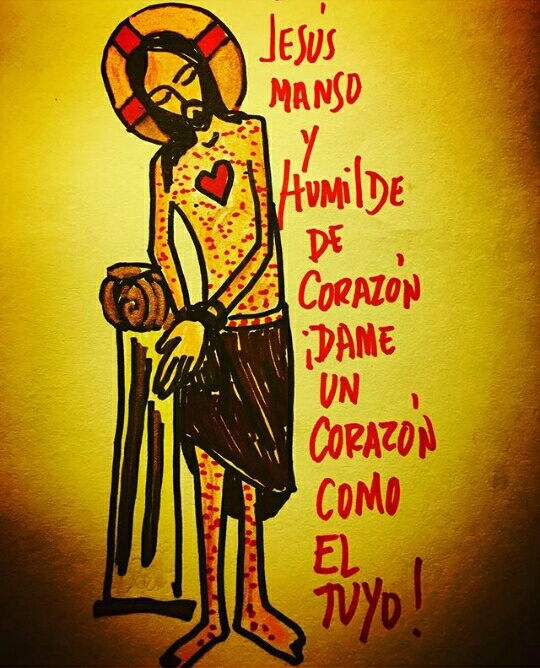 JESÚS
MANSO
Y
HUMILDE
DE
CORAZÓN
¡DAME
UN
CORAZÓN
COMO
EL
TUYO!